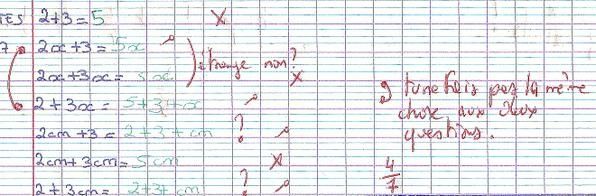 TES 2+3=5 X
7 2x+3=5x
2x+3x=5x étrange non? X
2+3x=5+3+x
tu ne fais pas la même
chose aux deux
questions.
2cm+3=2+3+cm ?
2cm+3cm=5cm X
2+3cm=2+3+cm ?
4/7